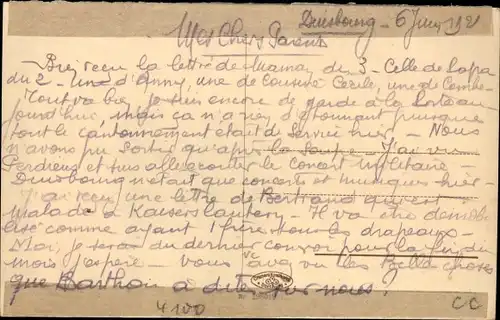 Duisbourg - 6 Juin 1921
Mes Chers Parents
Bien reçu la lettre de Maman du 3 - Celle de Papa
du 2 - une d'Anny, une de Cousine Cécile, une de
Tout va bien je suis encore de garde à la
jourd'hui, mais ça n'a rien d'étonnant puisque
tout le cantonnement était de service hier - Nous
n'avons pu sortir qu'après la soupe - J'ai vu
et suis allé écouter le concert militaire -
Duisbourg n'était que concerts et musiques hier -
J'ai reçu une lettre de Bertrand qui est
malade à Kaiserslautern - Il va être démobi-
lisé comme ayant 1 frère sous les drapeaux -
Moi, je serai du dernier convoi pour la fin du
mois j'espère - vous avez vu les Belles choses
que Barthou a dites sur nous.
4100
CC